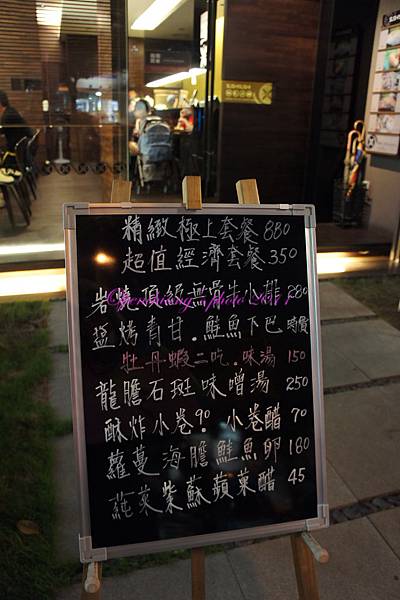 精緻極上套餐 880
超值經濟套餐 350
岩燒頂級無骨牛小排 280
鹽烤青甘.鮭魚下巴 時價
牡丹蝦二吃.味湯 150
龍膽石斑味噌湯 250
酥炸小卷 90. 小卷醋 70
蘿蔓海膽鮭魚卵 180
蒓菜紫蘇蘋菓醋 45